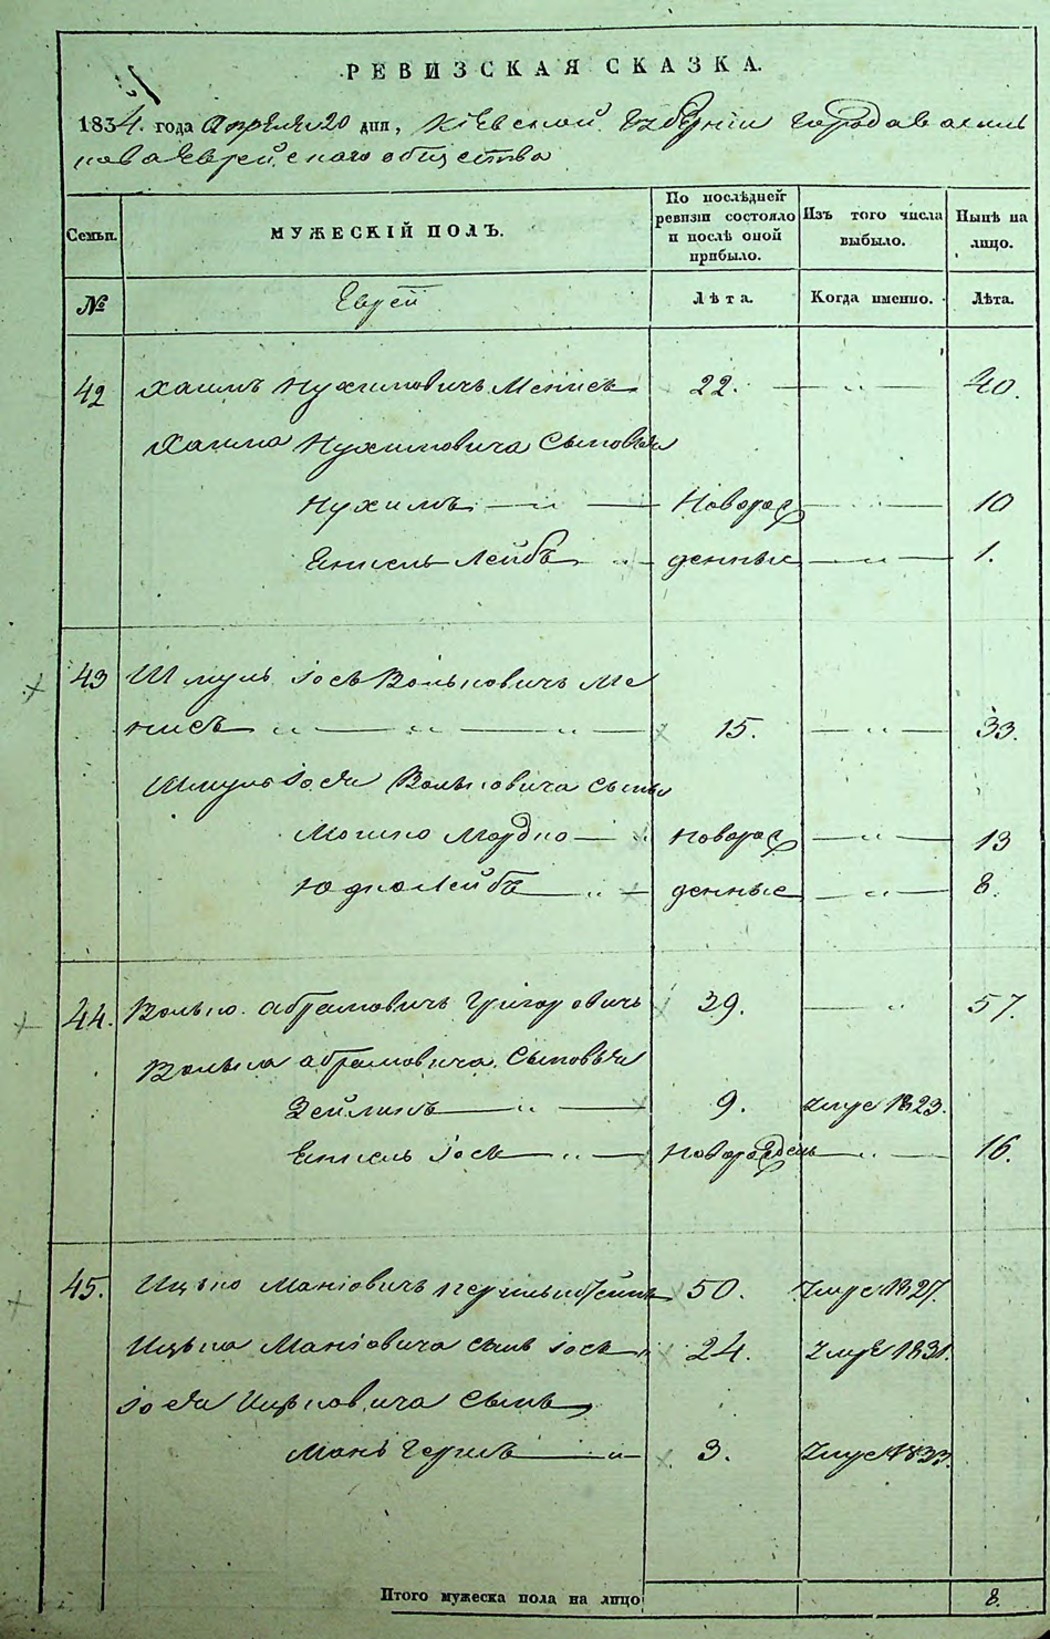 РЕВИЗСКАЯ СКАЗКА.
1834. года Апреля 20 дня, Кіевской Губерніи города Василь
кова Еврейского общества
Семьи.
МУЖЕСКІЙ ПОЛЪ.
По послѣдней ревизіи состояло и послѣ оной прибыло.
Изъ того числа выбыло.
Нынѣ на лицо.
№
Еврей
Лѣта.
Когда именно.
Лѣта.
42 Хаимъ Нухимовичъ Менисъ 22. — „ — 40.
Хаима Нухимовича Сыновья
Нухимъ — „ — Новорож — „ — 10
Енкель Лейбъ „ денные — „ — 1.
43 Шмуль Іосъ Волькович Ме
нисъ „ — „ — „ — 15. — „ — 33.
Шмуль Іося Вольковича Сыны
Мошко Мордко — „ Новорож — „ — 13
Юдко Лейбъ — „ — денные — „ — 8.
44. Волько Абрамовичъ Григоровичъ 39. — „ 57.
Волька Абрамовича Сыновья
Зейликъ — „ — 9. Умре 1823.
Енкель Іось — „ — Новорожден — „ — 16.
45. Ицько Маніовичъ 50. Умре 1827.
Ицька Маніовича сынъ Іось „ 24. Умре 1831.
Іося Ицьковича Сынъ
Мань Гершъ — „ — 3. Умре 1833.
Итого мужеска пола на лицо 8.